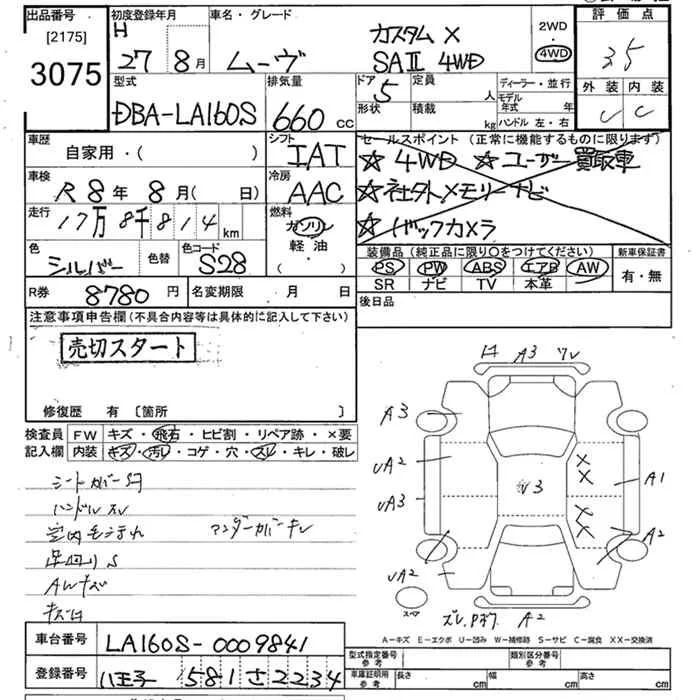 出品番号
[2175]
3075
初度登録年月
H 27年 8月
車名・グレード
ムーヴ
カスタム X
SAⅡ 4WD
2WD
・
4WD
評価点
3.5
外装 内装
C C
型式
DBA-LA160S
排気量
660 cc
ドア 5
定員 人
形状
積載 kg
ディーラー・並行
モデル年式 年
ハンドル 左・右
車歴
自家用・( )
シフト
IAT
車検
R 8年 8月( 日)
冷房
AAC
走行
17万8千814km
燃料
ガソリン
軽油
( )
色
シルバー
色替
色コード
S28
R券 8780円
名変期限 月 日
セールスポイント (正常に機能するものに限ります)
☆ 4WD ☆ ユーザー買取車
☆ 社外メモリーナビ
☆ バックカメラ
装備品 (純正品に限り○をつけてください)
新車保証書
PS PW ABS エアB AW
SR ナビ TV 本革
有・無
後日品
注意事項申告欄(不具合内容等は具体的に記入して下さい)
売切スタート
修復歴 有 〔箇所 〕
検査員記入欄
FW キズ・飛石・ヒビ割・リペア跡・×要
内装 キズ・汚レ・コゲ・穴・スレ・キレ・破レ
ハンドルスレ
アンダーカバーキレ
足回りS
AWキズ
A3
A3
UA2
UA3
U3
A1
A2
UA2
スペア
A2
A=キズ E=エクボ U=凹み W=補修跡 S=サビ C=腐食 XX=交換済
車台番号 LA160S-0009841
登録番号 八王子 581 さ 2234
型式指定番号 参考
類別区分番号 参考
車庫証明用 参考
長さ cm
幅 cm
高さ cm